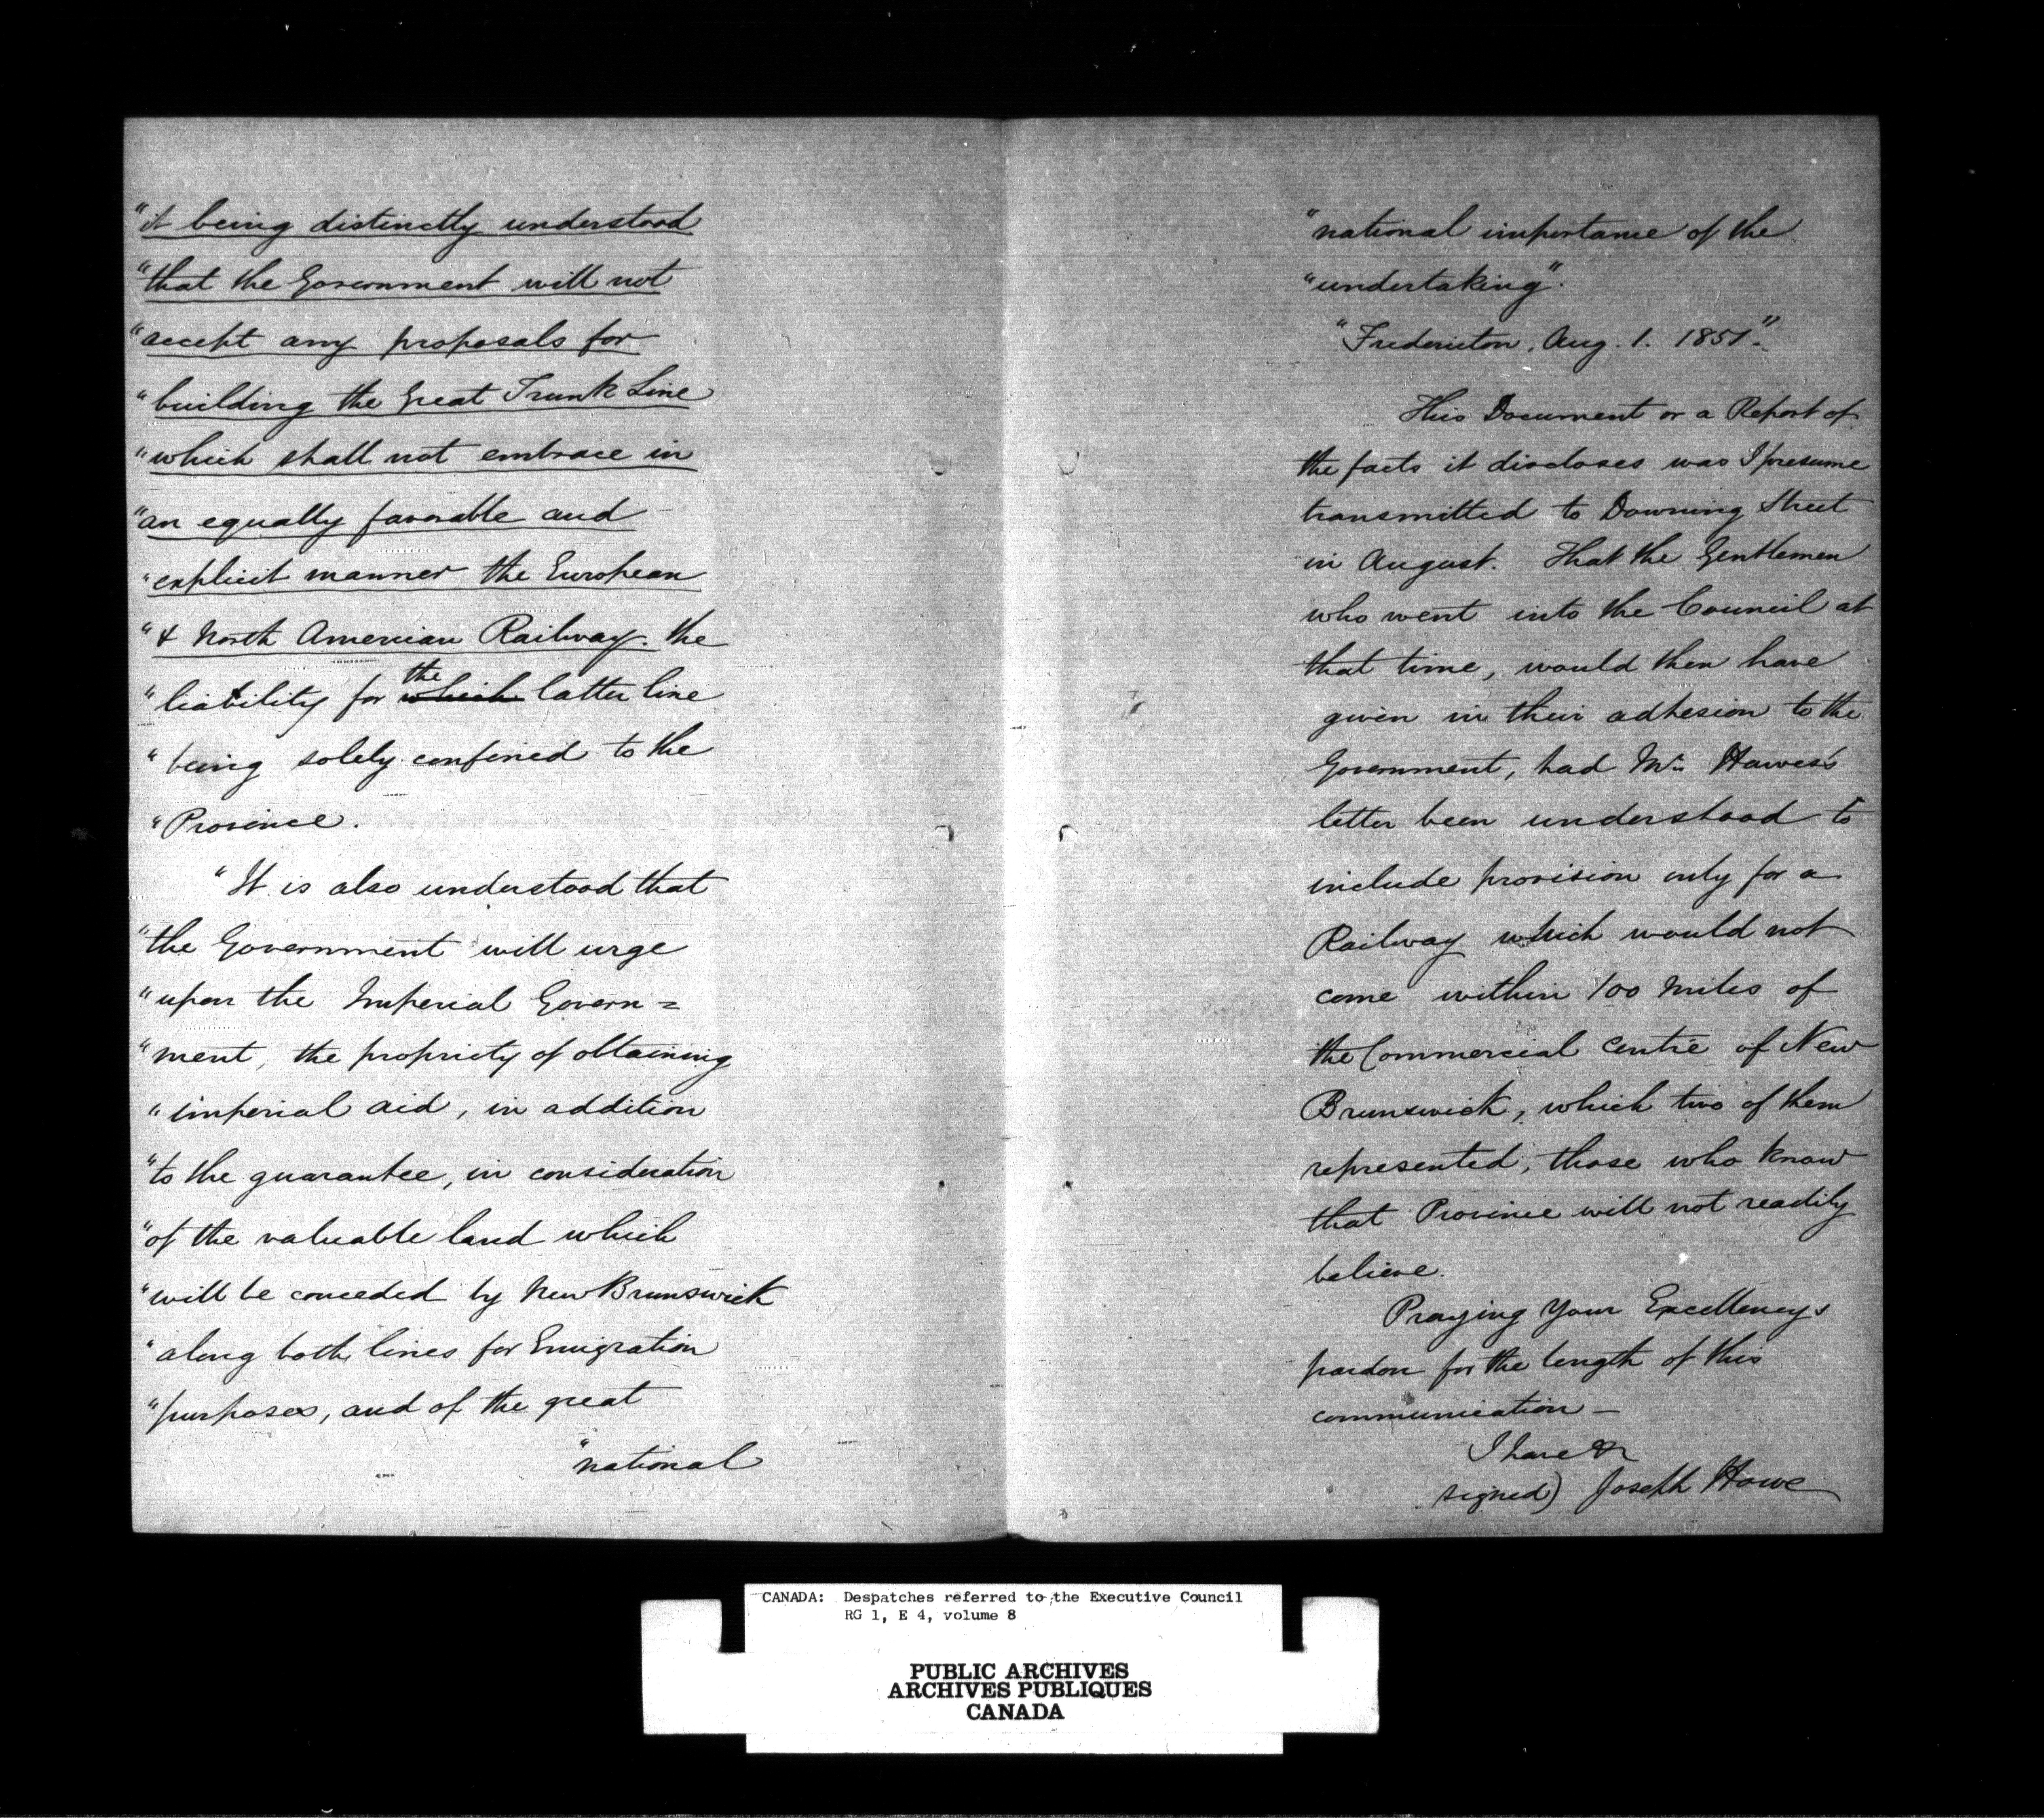 "it being distinctly understood
"that the Government will not
"accept any proposals for
"building the Great Trunk Line
"which shall not embrace in
"an equally favorable and
"explicit manner the European
"& North American Railway. the
the
"liability for which latter line
"being solely confined to the
"Province.
"It is also understood that
"the Government will urge
"upon the Imperial Govern=
"ment, the propriety of obtaining
"imperial aid, in addition
"to the guarantee, in consideration
"of the valuable land which
"will be conceded by New Brunswick
"along both lines for Emigration
"purposes, and of the great
"national
"national importance of the
"undertaking".
"Fredericton, Aug. 1. 1851".
This Document or a Report of
the facts it discloses was I presume
transmitted to Downing Street
in August. That the Gentlemen
who went into the Council at
that time, would then have
given in their adhesion to the
Government, had Mr. Hawes's
letter been understood to
include provision only for a
Railway which would not
come within 100 miles of
the Commercial Centre of New
Brunswick, which two of them
represented, those who know
that Province will not readily
believe.
Praying Your Excellency's
pardon for the length of this
communication —
I have &c
signed) Joseph Howe
CANADA: Despatches referred to the Executive Council
RG 1, E 4, volume 8
PUBLIC ARCHIVES
ARCHIVES PUBLIQUES
CANADA